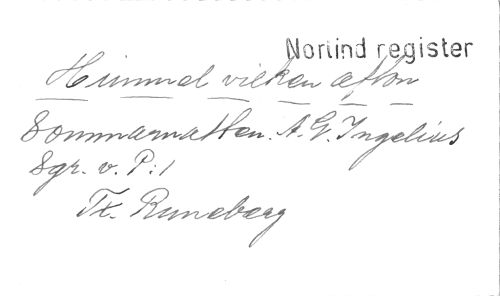 Norlind register
Himmel vilken afton
Sommarnatten. A. G. Ingelius
Sgr. v. P:1
Tt. Runeberg